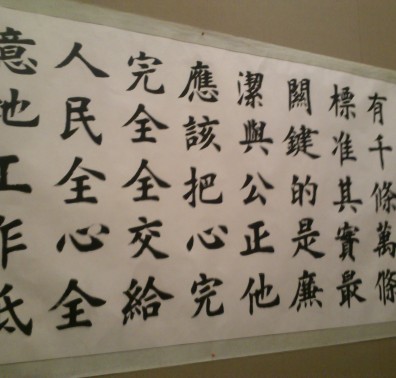 有千條萬條
標准其實最
關鍵的是廉
潔與公正他
應該把心完
完全全交給
人民全心全
意地工作